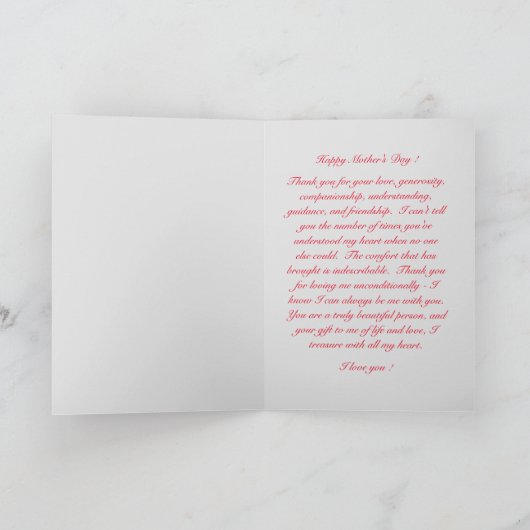 Happy Mother's Day !
Thank you for your love, generosity,
companionship, understanding,
guidance, and friendship. I can't tell
you the number of times you've
understood my heart when no one
else could. The comfort that has
brought is indescribable. Thank you
for loving me unconditionally - I
know I can always be me with you.
You are a truly beautiful person, and
your gift to me of life and love, I
treasure with all my heart.
I love you !